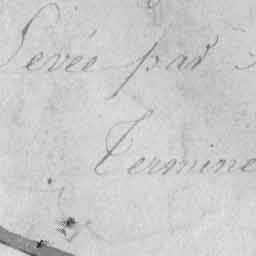 Levée par
Termine